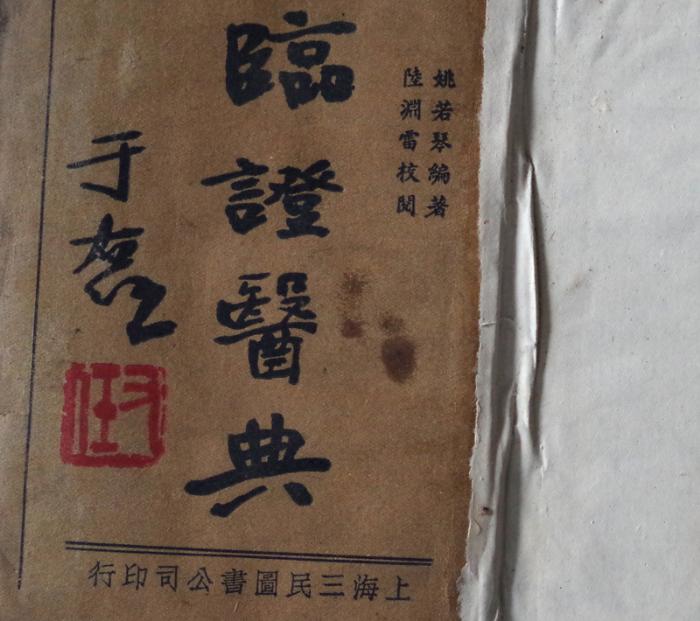 姚若琴編著
陸淵雷校閱
臨證醫典
于右任
上海三民圖書公司印行